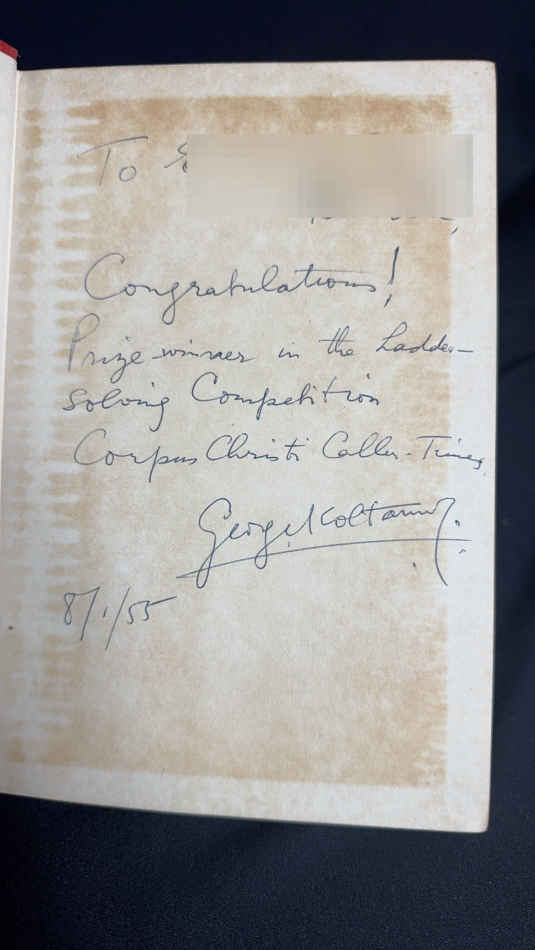 To
Congratulations!
Prize-winner in the Ladder-
solving Competition
Corpus Christi Caller-Times
George Koltanowski
8/1/55